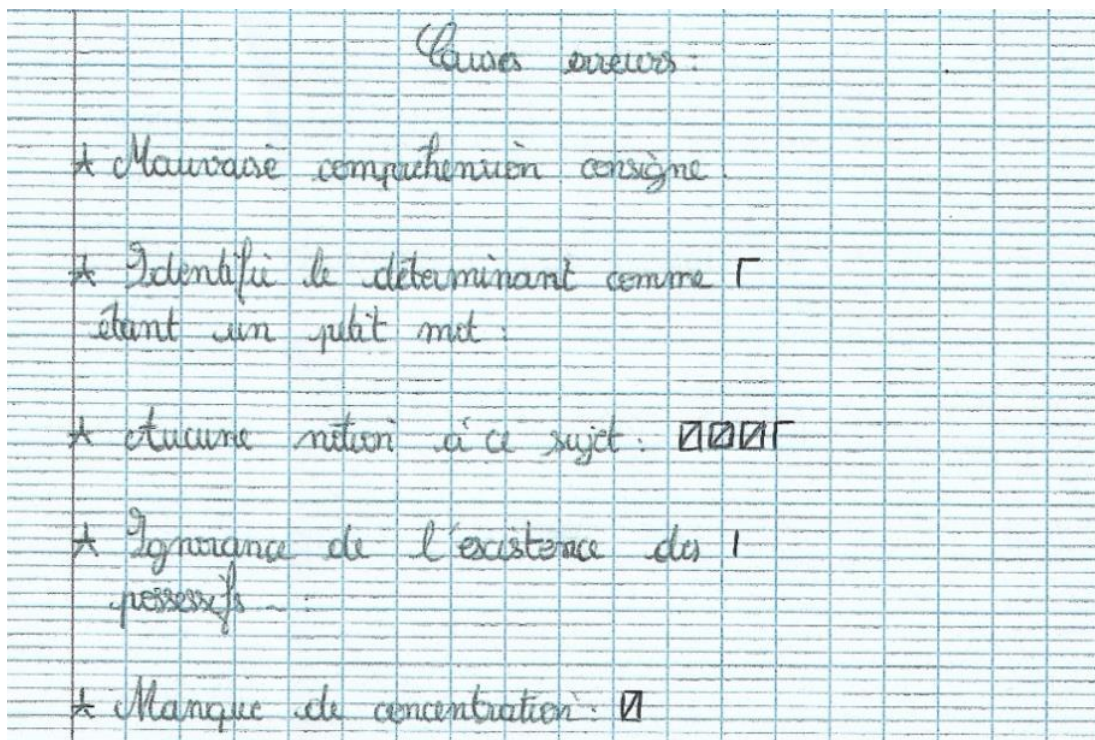 Causes erreurs :
★ Mauvaise compréhension consigne.
★ Identifie le déterminant comme
étant un petit mot :
★ Aucune notion à ce sujet :
★ Ignorance de l'existence des
possessifs :
★ Manque de concentration :